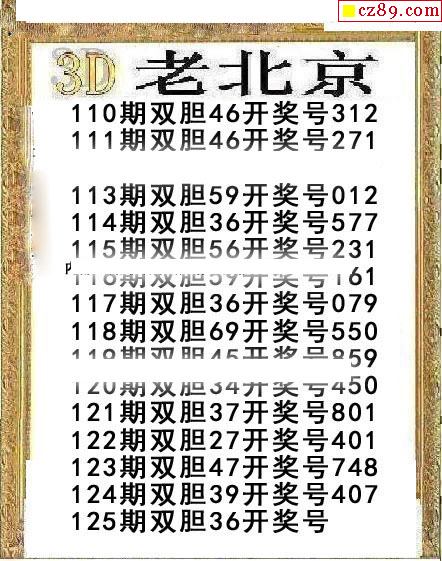 cz89.com
3D 老北京
110期双胆46开奖号312
111期双胆46开奖号271
113期双胆59开奖号012
114期双胆36开奖号577
115期双胆56开奖号231
116期双胆59开奖号161
117期双胆36开奖号079
118期双胆69开奖号550
119期双胆45开奖号859
120期双胆34开奖号450
121期双胆37开奖号801
122期双胆27开奖号401
123期双胆47开奖号748
124期双胆39开奖号407
125期双胆36开奖号